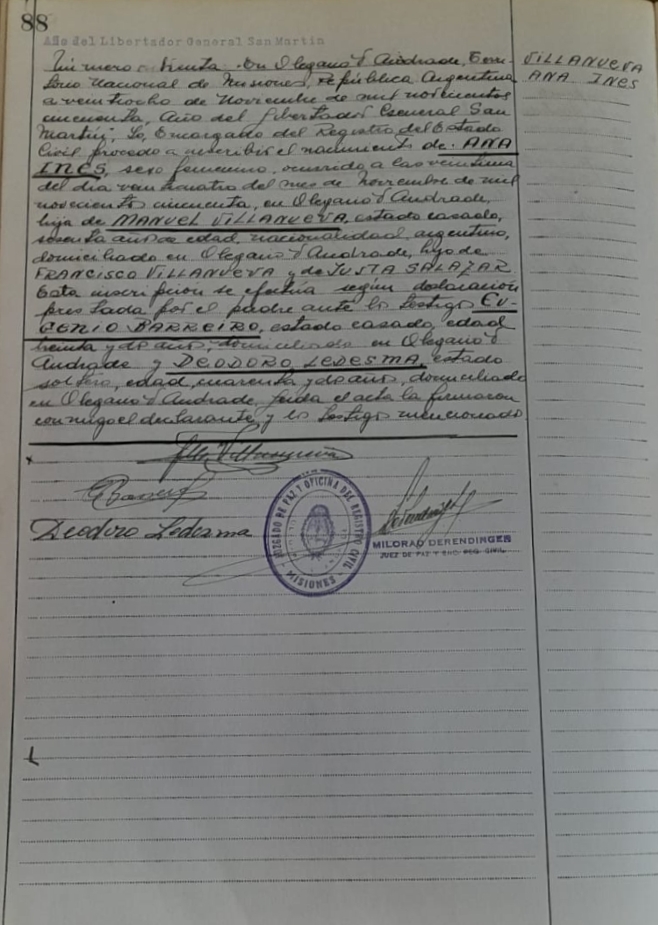 88
Año del Libertador General San Martin
VILLANUEVA
ANA INES
Número ochenta. En Olegario V. Andrade, Terri-
torio Nacional de Misiones, República Argentina
a veintiocho de Noviembre de mil novecientos
cincuenta, Año del Libertador General San
Martín; Yo, Encargado del Registro del Estado
Civil procedo a inscribir el nacimiento de. ANA
INES, sexo femenino, ocurrido a las veintiuna
del día veinticuatro del mes de Noviembre de mil
novecientos cincuenta, en Olegario V. Andrade,
hija de MANUEL VILLANUEVA, estado casado,
sesenta años de edad, nacionalidad argentino,
domiciliado en Olegario V. Andrade, hijo de
FRANCISCO VILLANUEVA y de JUSTA SALAZAR
Esta inscripción se efectúa según declaración
prestada por el padre ante los testigos EU-
GENIO BARREIRO, estado casado, edad
treinta y dos años, domiciliado en Olegario V.
Andrade y DEODORO LEDESMA, estado
soltero, edad, cuarenta y dos años, domiciliado
en Olegario V. Andrade, leída el acta la firmaron
conmigo el declarante, y los testigos mencionados
Deodoro Ledesma
JUZGADO DE PAZ Y OFICINA DEL REGISTRO CIVIL
MISIONES
MILORAD DERENDINGER
JUEZ DE PAZ Y ENC. REG. CIVIL.